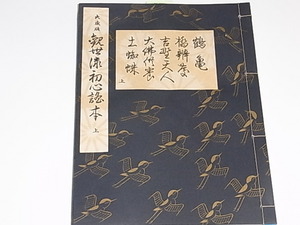 大成版 観世流初心謡本 上
鶴亀
橋弁慶
吉野天人
大佛供養
土蜘蛛
上